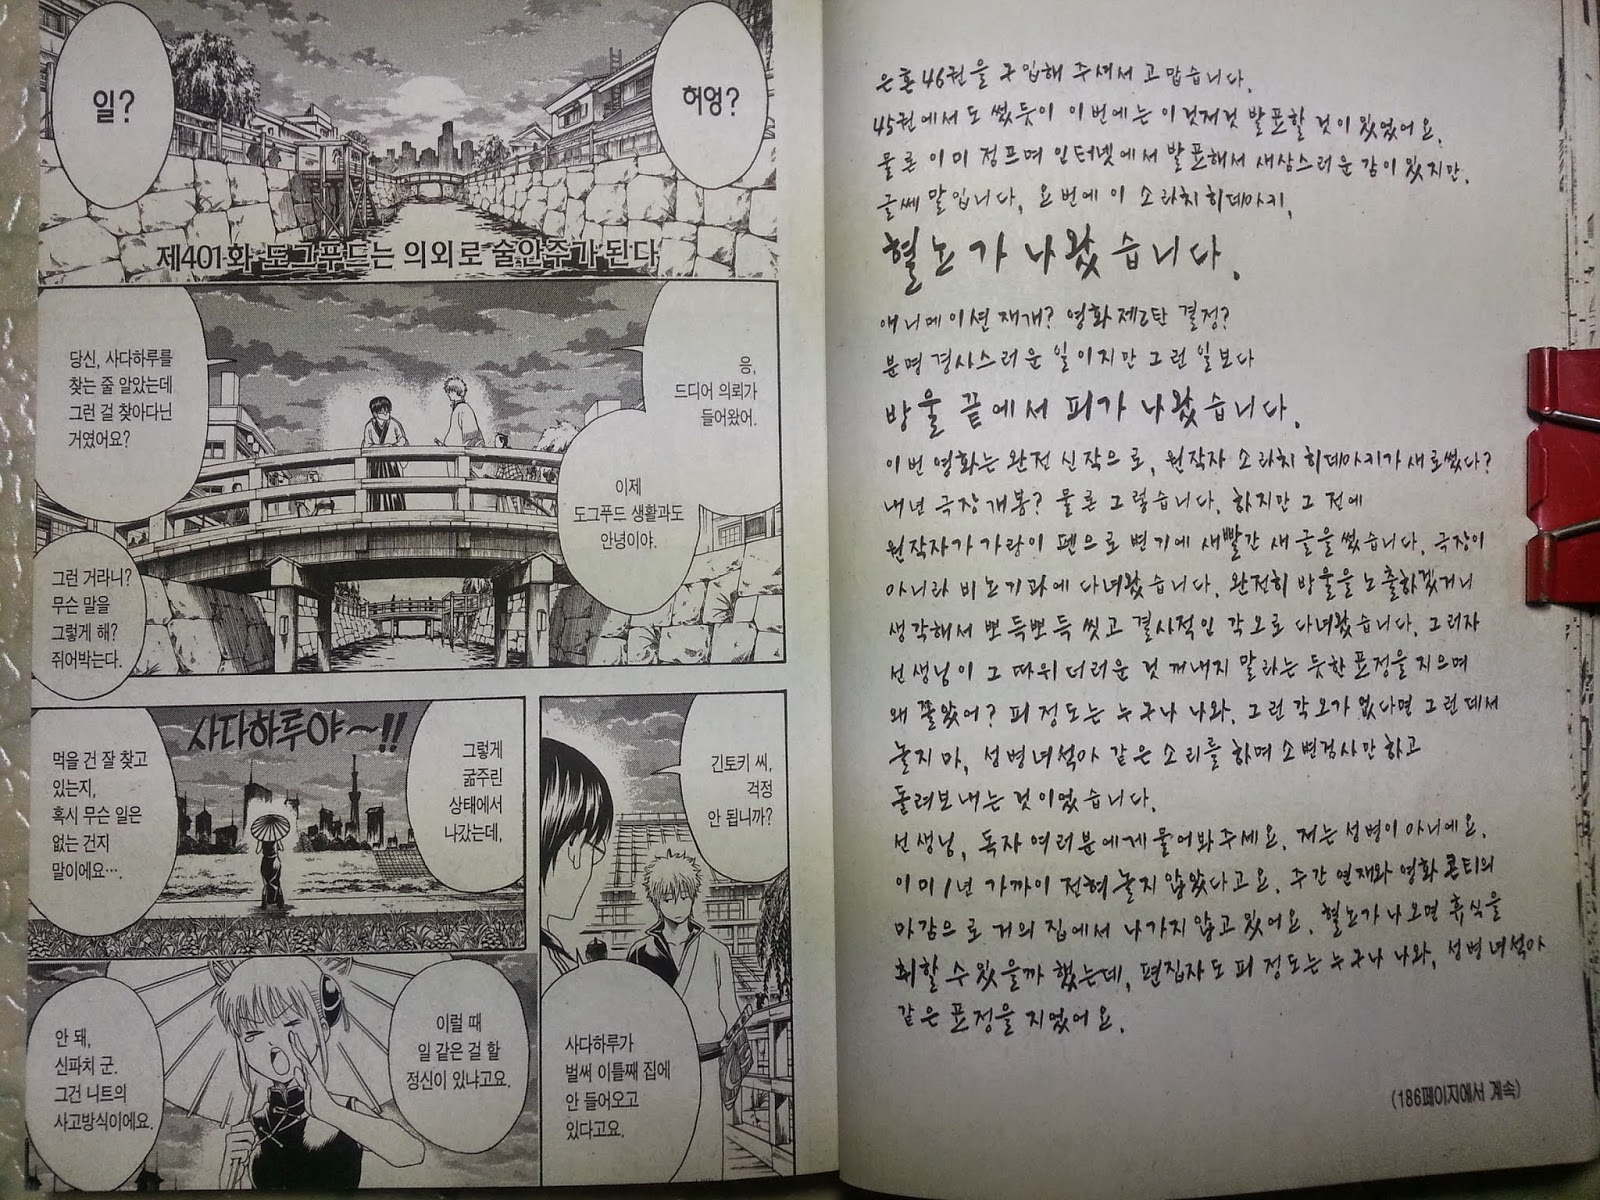 허엉?
일?
제401화 도그푸드는 의외로 술안주가 된다
응,
드디어 의뢰가
들어왔어.
이제
도그푸드 생활과도
안녕이야.
당신, 사다하루를
찾는 줄 알았는데
그런 걸 찾아다닌
거였어요?
그런 거라니?
무슨 말을
그렇게 해?
쥐어박는다.
긴토키 씨,
걱정
안 됩니까?
사다하루가
벌써 이틀째 집에
안 들어오고
있다고요.
사다하루야~!!
그렇게
굶주린
상태에서
나갔는데,
먹을 건 잘 찾고
있는지,
혹시 무슨 일은
없는 건지
말이에요….
이럴 때
일 같은 걸 할
정신이 있냐고요.
안 돼,
신파치 군.
그건 니트의
사고방식이에요.
은혼 46권을 구입해 주셔서 고맙습니다.
45권에서도 썼듯이 이번에는 이것저것 발표할 것이 있었어요.
물론 이미 점프며 인터넷에서 발표해서 새삼스러운 감이 있지만.
글쎄 말입니다, 요번에 이 소라치 히데아키,
혈뇨가 나왔습니다.
애니메이션 재개? 영화 제2탄 결정?
분명 경사스러운 일이지만 그런 일보다
방울 끝에서 피가 나왔습니다.
이번 영화는 완전 신작으로, 원작자 소라치 히데아키가 새로 썼다?
내년 극장 개봉? 물론 그렇습니다. 하지만 그 전에
원작자가 가랑이 펜으로 변기에 새빨간 새 글을 썼습니다. 극장이
아니라 비뇨기과에 다녀왔습니다. 완전히 방울을 노출하겠거니
생각해서 뽀득뽀득 씻고 결사적인 각오로 다녀왔습니다. 그러자
선생님이 그 따위 더러운 것 꺼내지 말라는 듯한 표정을 지으며
왜 쫄았어? 피 정도는 누구나 나와. 그런 각오가 없다면 그런 데서
놀지 마, 성병 녀석아 같은 소리를 하며 소변검사만 하고
돌려보내는 것이었습니다.
선생님, 독자 여러분에게 물어봐 주세요. 저는 성병이 아니에요.
이미 1년 가까이 전혀 놀지 않았다고요. 주간 연재와 영화 콘티의
마감으로 거의 집에서 나가지 않고 있어요. 혈뇨가 나오면 휴식을
취할 수 있을까 했는데, 편집자도 피 정도는 누구나 나와, 성병 녀석아
같은 표정을 지었어요.
(186페이지에서 계속)